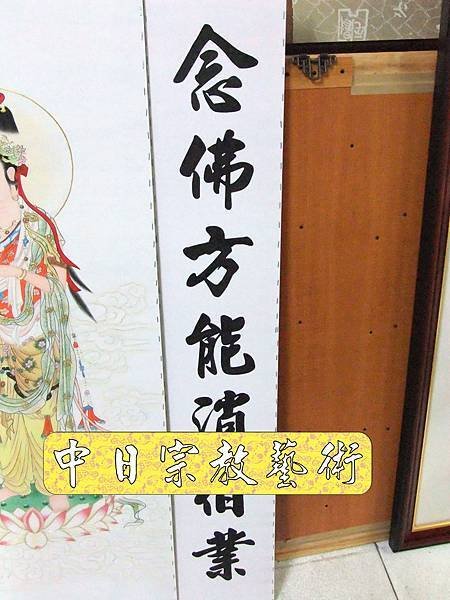 念佛方能消宿業
中日宗教藝術